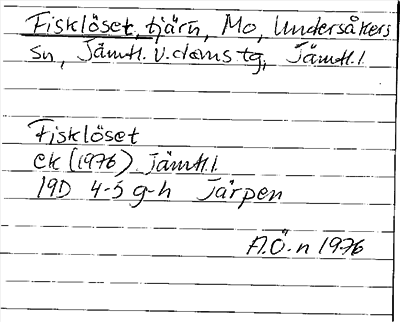 Fisklöset, tjärn, Mo, Undersåkers
sn, Jämtl. v. doms tg, Jämtl. l
Fisklöset
ek (1976) Jämtl. l.
19D 4-5 g-h Järpen
A.Ö-n 1976